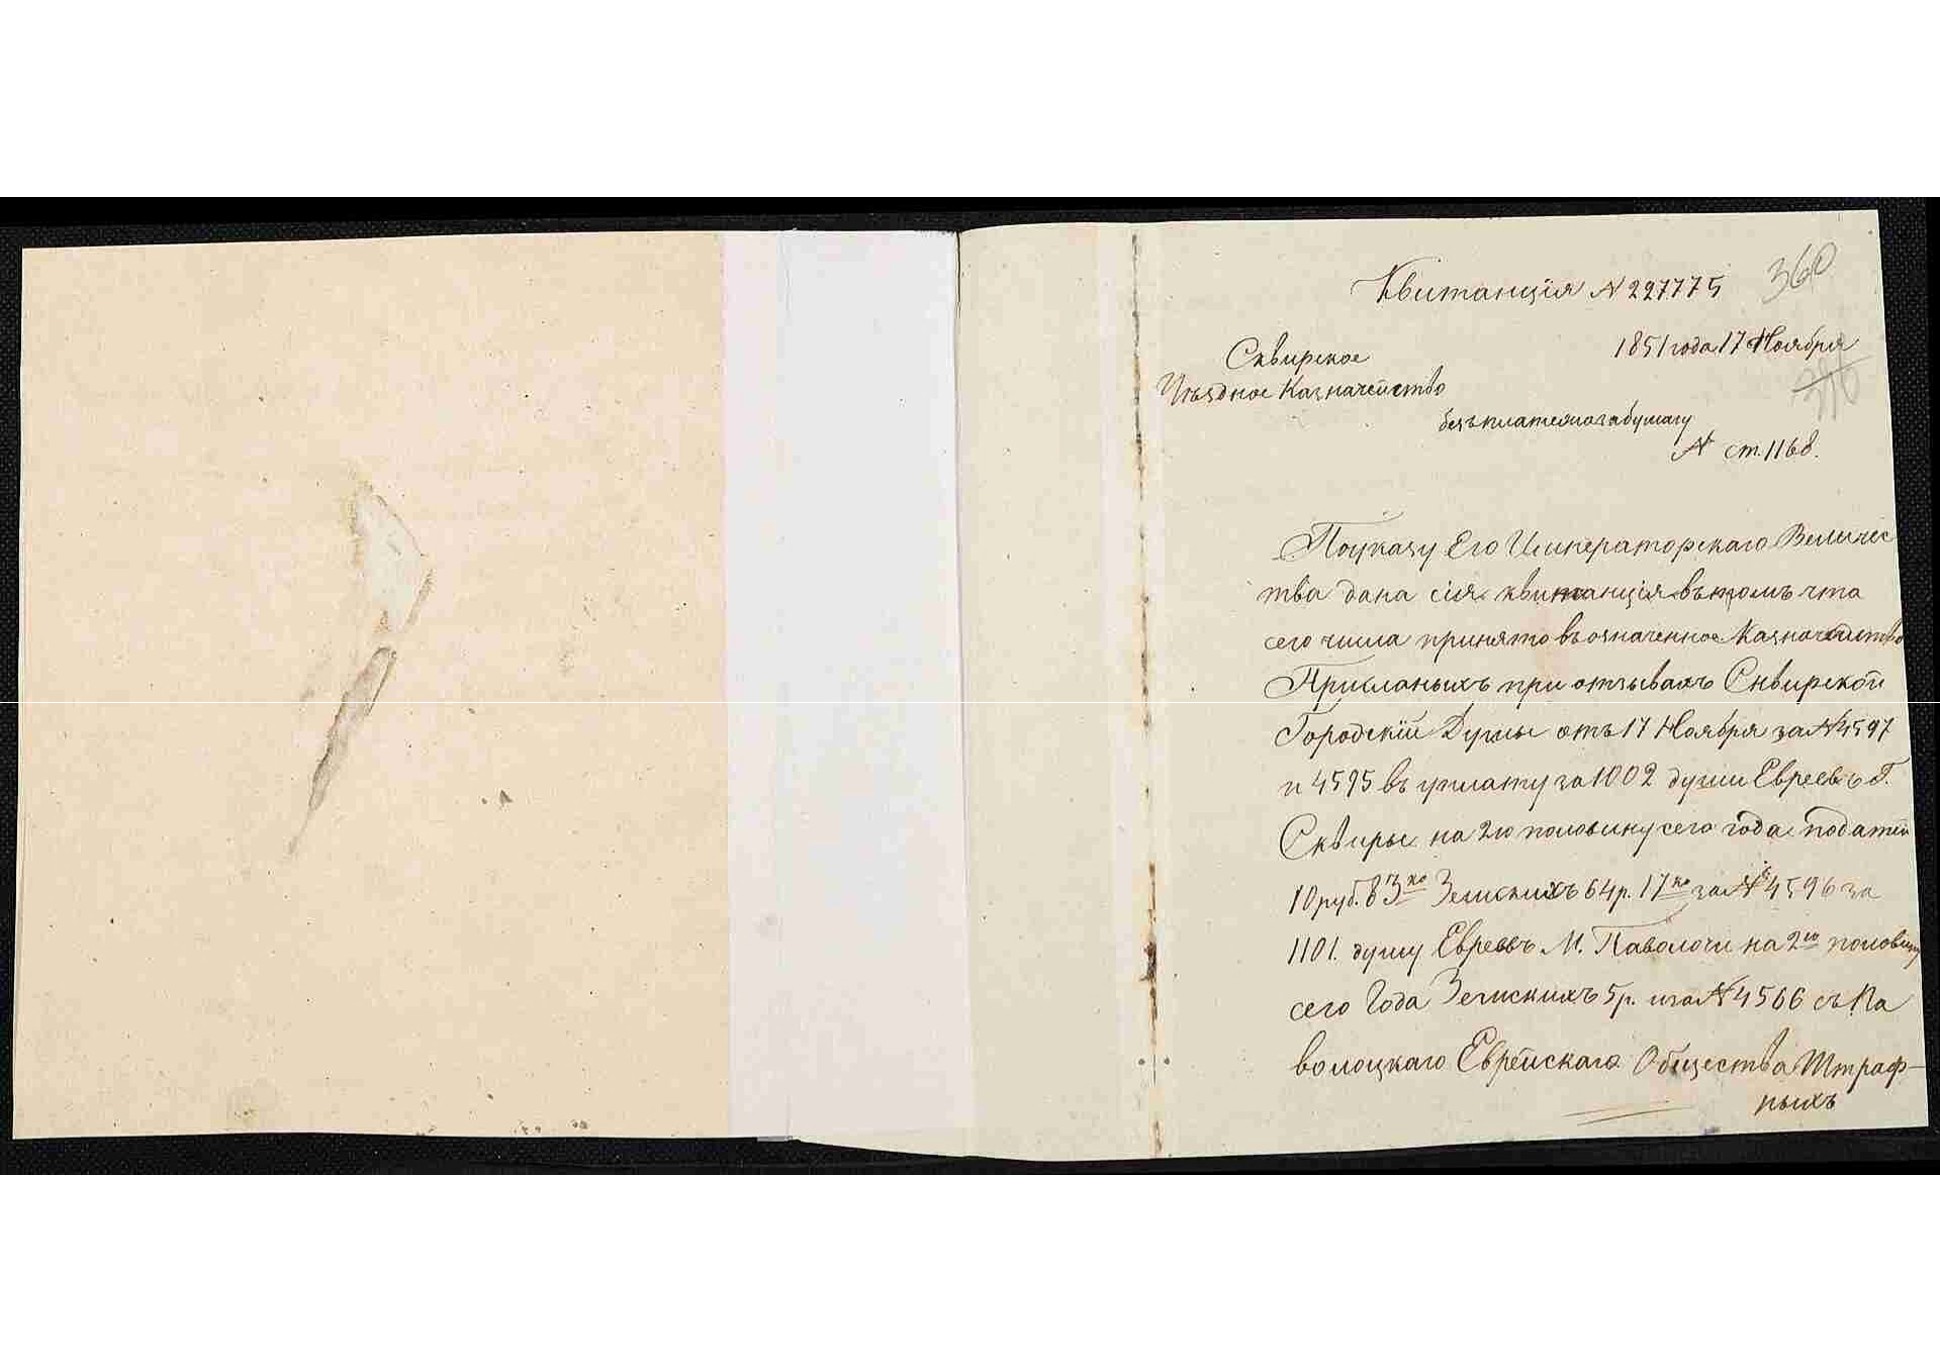 Квитанція № 227775
360
1851 года 17 Ноября
Сквирское
Уѣздное Казначейство
безъ платежа за бумагу
№ ст. 1168.
По указу Его Императорскаго Величес
тва дана сія квитанція въ томъ что
сего числа принято въ означенное Казначейство
Присланыхъ при отзывахъ Сквирской
Городскій Думы отъ 17 Ноября за № 4597
и 4595 въ уплату за 1002 души Евреевъ Г.
Сквиры на 2ю половину сего года податей
10 руб. 83 ко Земскихъ 64 р. 17 ко за № 4596 за
1101. душу Евреевъ М. Паволочи на 2ю половину
сего Года Земскихъ 5 р. и за № 4566 съ Па
волоцкаго Еврейскаго Общества Штраф-
ныхъ